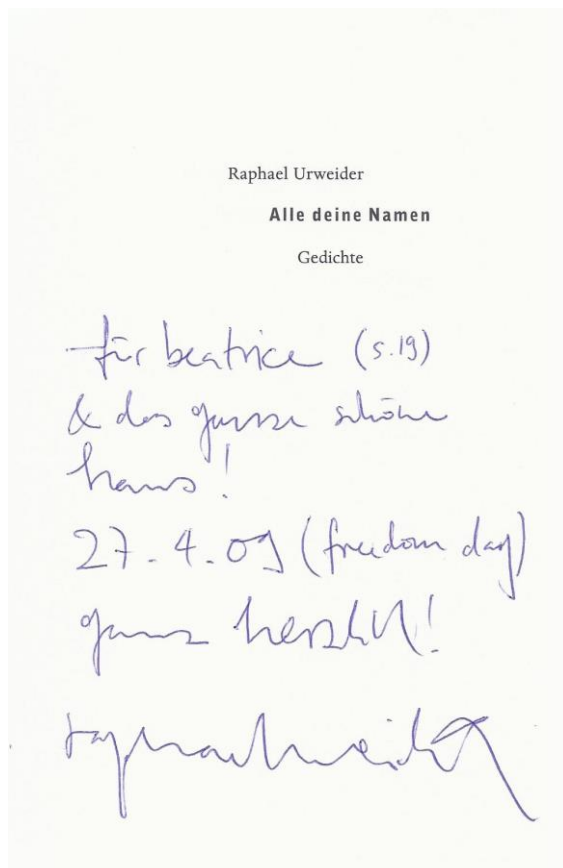 Raphael Urweider
Alle deine Namen
Gedichte
für beatrice (s.19)
& das ganze schöne
haus!
27.4.09 (freedom day)
ganz herzlich!
raphael urweider